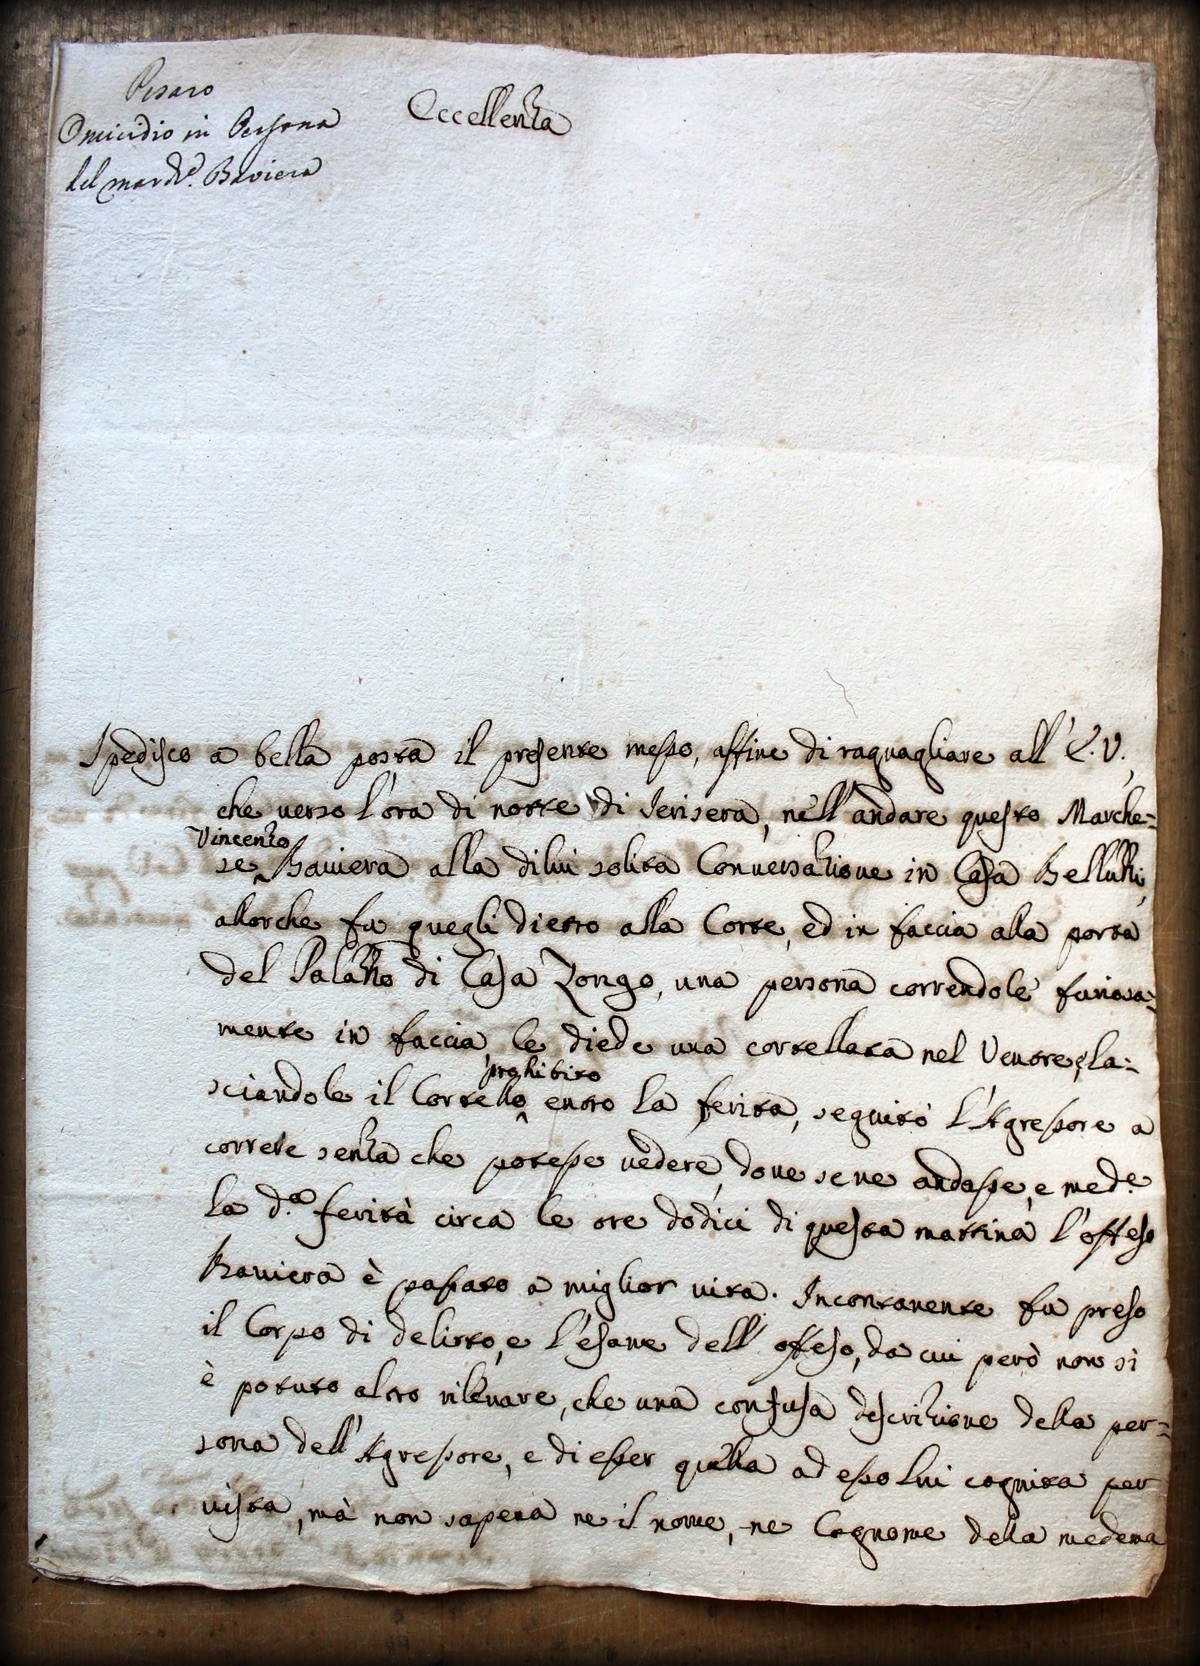 Pesaro
Omicidio in Persona
del march.e Baviera
Eccellenza
Spedisco a bella posta il presente messo, affine di raguagliare all' E. V.,
che verso l'ora di notte di Jerisera, nell'andare questo Marche=
Vincenzo
se Baviera alla dilui solita Conversazione in Casa Belluzzi,
allorche fu quegli dietro alla Corte, ed in faccia alla porta
del Palazzo di Casa Zongo, una persona correndole furiosa=
mente in faccia, le diede una cortellata nel Ventre, e la=
prohibito
sciandole il Cortello entro la ferita, seguitò l'Agressore a
correre senza che potesse vedere, dove se ne andasse, e med.e
la d.a ferita circa le ore dodici di questa mattina l'offeso
Baviera è passato a miglior vita. Incontanente fu preso
il Corpo di delitto, e l'esame dell' offeso, da cui però non si
è potuto altro rilevare, che una confusa descrizione della per=
sona dell' Agressore, e di esser quella ad esso lui cognita per
vista, mà non sapeva ne il nome, ne Cognome della medema